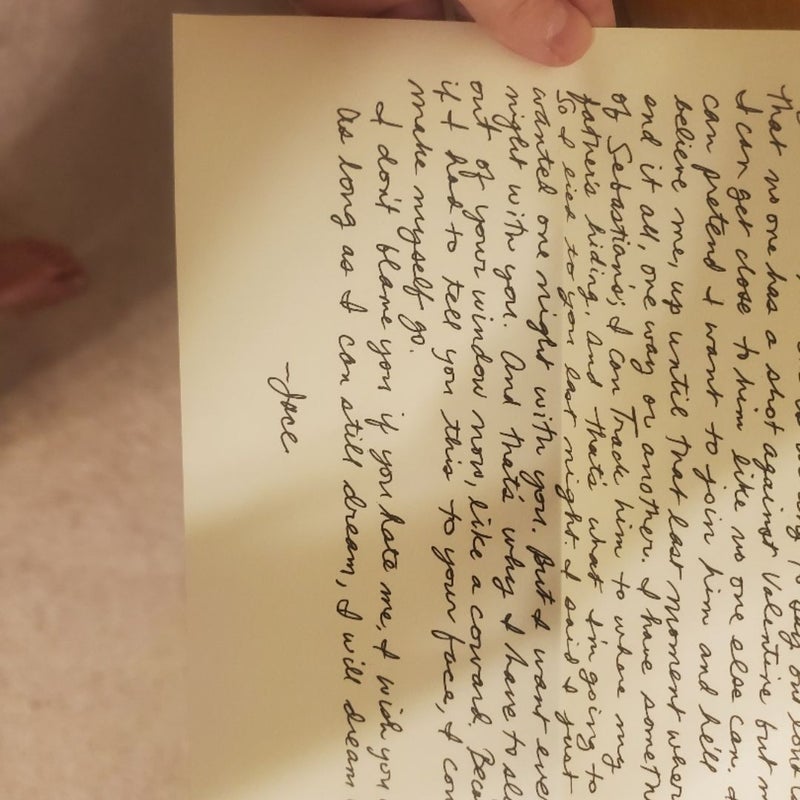 that no one has a shot against Valentine but m
I can get close to him like no one else can. I
can pretend I want to join him and he'll
believe me, up until that last moment wher
end it all, one way or another. I have someth
of Sebastian's; I can track him to where my
father's hiding, and that's what I'm going to
So I lied to you last night. I said I just
wanted one night with you. But I want ever
night with you. And that's why I have to sli
out of your window now, like a coward. Beca
if I had to tell you this to your face, I con
make myself go.
I don't blame you if you hate me, I wish you
As long as I can still dream, I will dream
-Jace